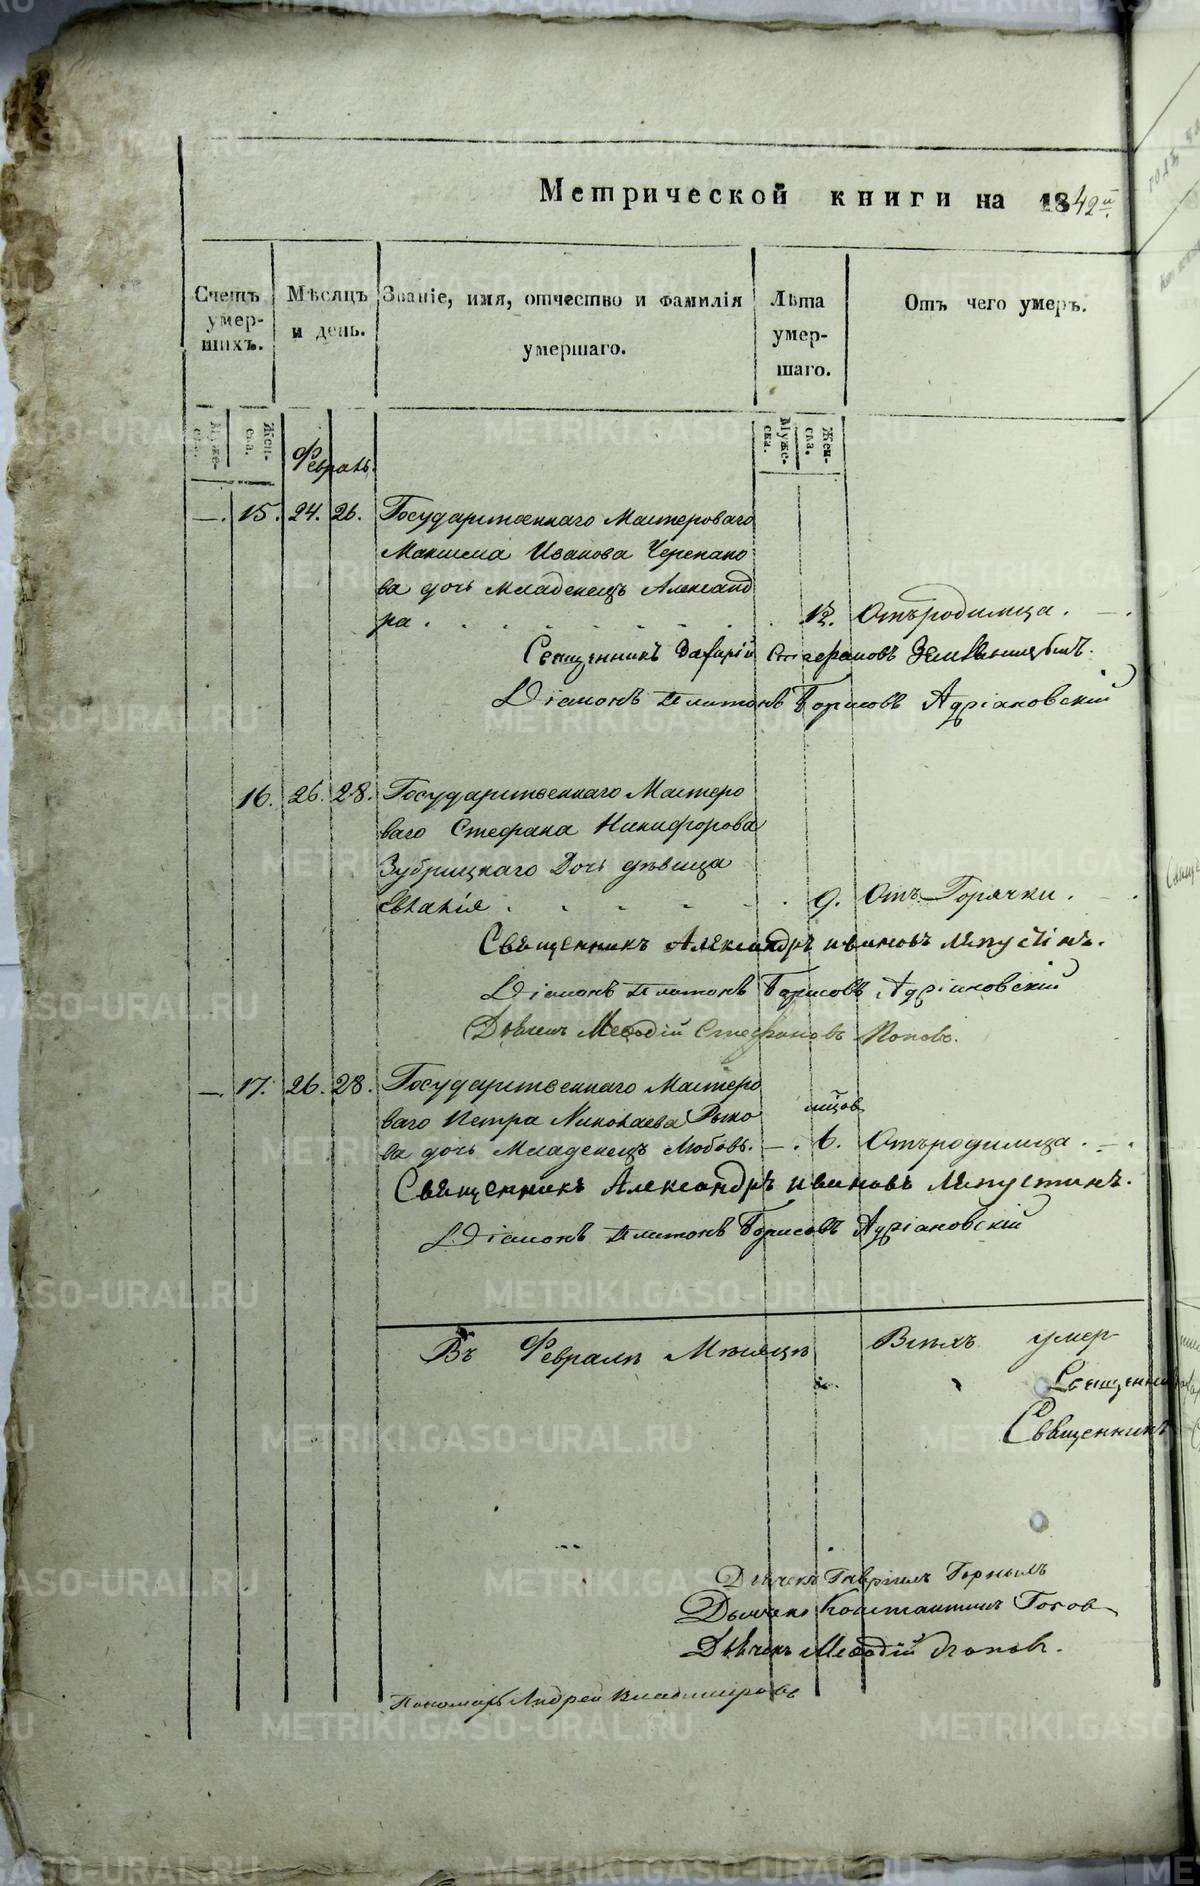 Метрической книги на 1842й
Счетъ умер-шихъ.
Мѣсяцъ и день.
Званіе, имя, отчество и фамилія умершаго.
Лѣта умер-шаго.
Отъ чего умеръ.
Муже-ска.
Жен-ска.
Февраль.
Муже-ска.
Жен-ска.
—. 15. 24. 26. Государственнаго Мастероваго
Максима Иванова Черепано
ва дочь младенецъ Александ
ра . Отъ родимца . —.
Священникъ Стефановъ
Діаконъ Платонъ Борисовъ Адріановскій
16. 26. 28. Государственнаго Мастеро
ваго Стефана Никифорова
Зубрицкаго Дочь дѣвица
9. Отъ Горячки . —.
Священникъ Александръ Ивановъ Лепустинъ.
Діаконъ Платонъ Борисовъ Адріановскій
Дьячекъ Меѳодій Стефановъ Поповъ.
—. 17. 26. 28. Государственнаго Мастеро
ваго Петра Николаева Рыко
ва дочь Младенецъ Любовь. —. 6. Отъ родимца . —.
Священникъ Александръ Ивановъ Лепустинъ.
Діаконъ Платонъ Борисовъ Адріановскій
Въ Февралѣ Мѣсяцѣ Всѣхъ умер-
Священник
Священникъ
Дьячекъ Гавріилъ
Дьячекъ Константинъ
Дьячекъ Меѳодій Поповъ.
Пономарь Андрей Владимировъ
METRIKI.GASO-URAL.RU